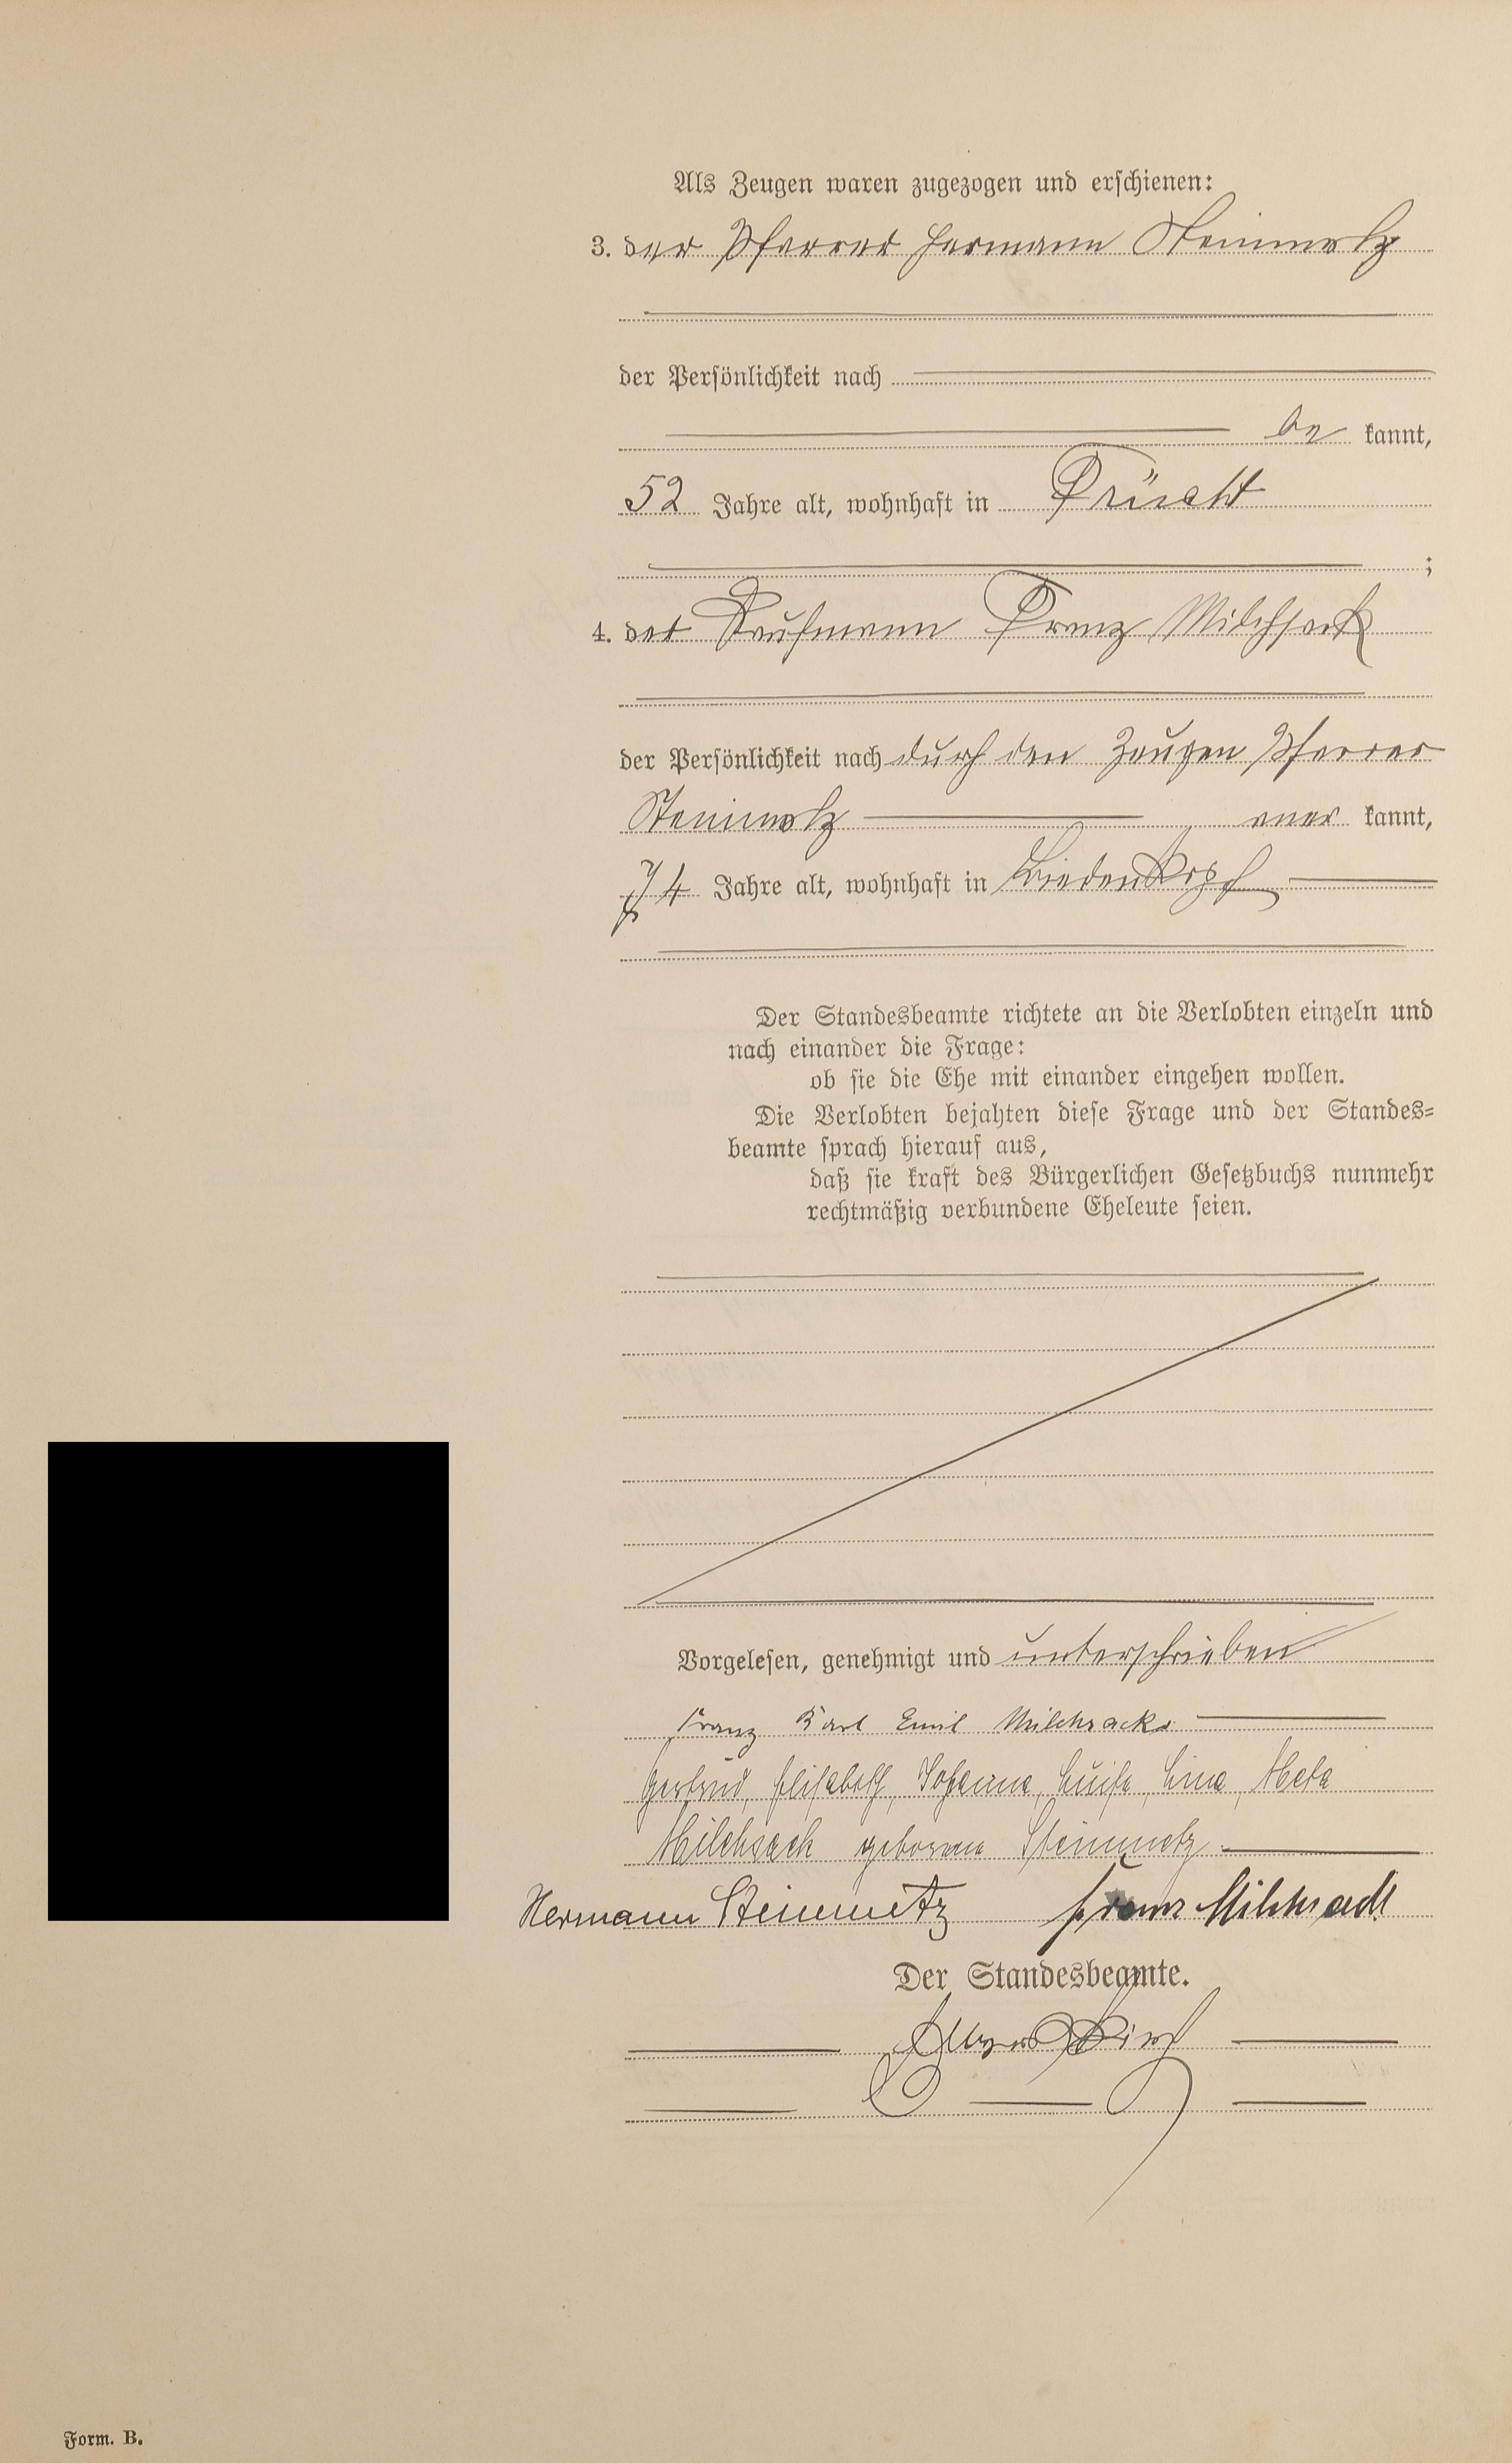 Als Zeugen waren zugezogen und erschienen:
3. der Pfarrer Hermann Steinmetz
der Persönlichkeit nach
be kannt,
52 Jahre alt, wohnhaft in Frücht
;
4. der Kaufmann Franz Milchsack
der Persönlichkeit nach durch den Zeugen Pfarrer
Steinmetz aner kannt,
74 Jahre alt, wohnhaft in Biedenkopf
Der Standesbeamte richtete an die Verlobten einzeln und
nach einander die Frage:
ob sie die Ehe mit einander eingehen wollen.
Die Verlobten bejahten diese Frage und der Standes=
beamte sprach hierauf aus,
daß sie kraft des Bürgerlichen Gesetzbuchs nunmehr
rechtmäßig verbundene Eheleute seien.
Vorgelesen, genehmigt und unterschrieben
Franz Karl Emil Milchsack.
Gertrud, Elisabeth, Johanna, Luise, Lina, Meta
Milchsack geborene Steinmetz.
Hermann Steinmetz Franz Milchsack
Der Standesbeamte.
Form. B.